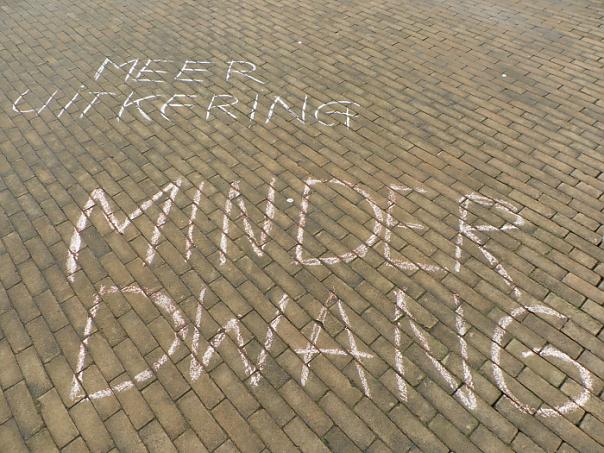 MEER
UITKERING
MINDER
DWANG